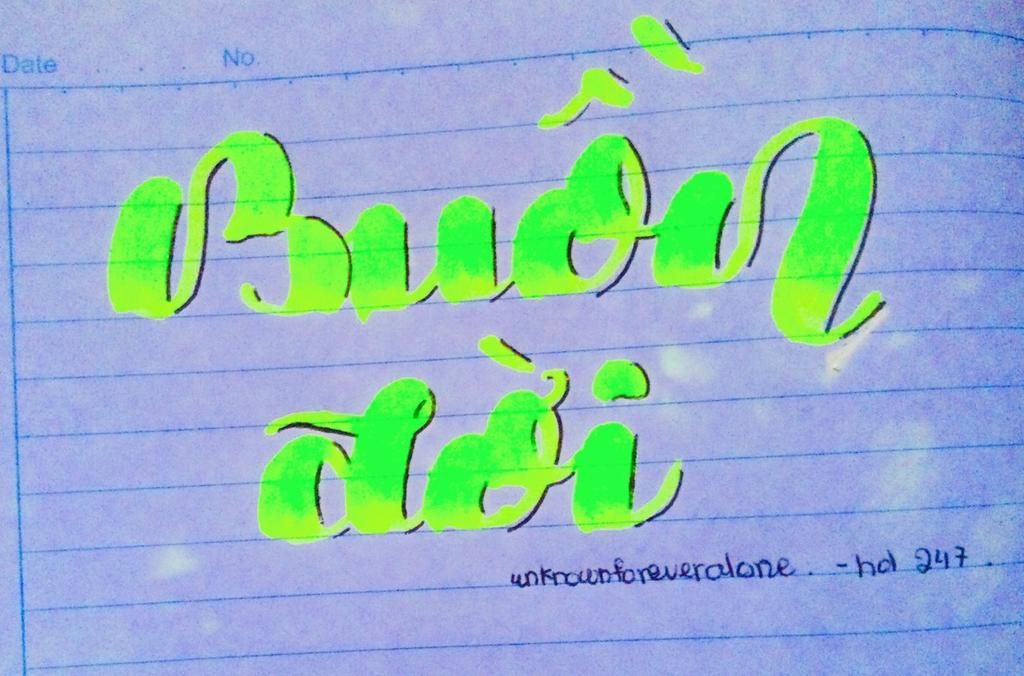 Date No.
Buồn
đời
unknownforeveralone. -hd 247.